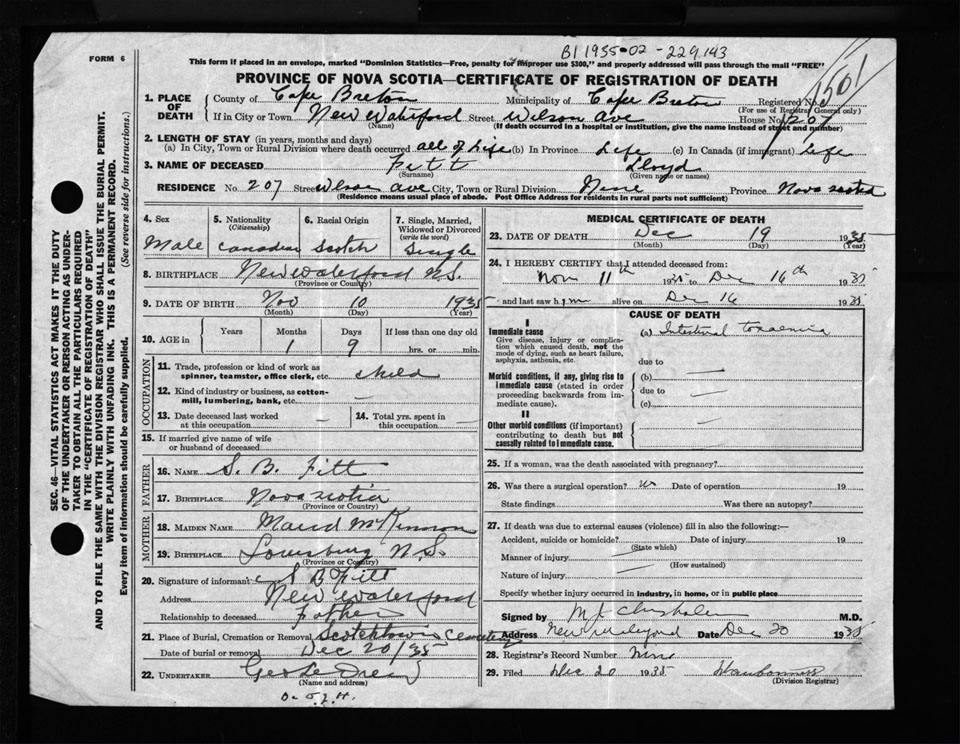 B1 1935-02-229143
1501
FORM 6
This form if placed in an envelope, marked "Dominion Statistics—Free, penalty for improper use $300," and properly addressed will pass through the mail "FREE"
PROVINCE OF NOVA SCOTIA—CERTIFICATE OF REGISTRATION OF DEATH
1. PLACE OF DEATH County of Cape Breton Municipality of Cape Breton Registered No.
(For use of Registrar General only)
If in City or Town New Waterford Street Wilson Ave House No. 207
(Name) (If death occurred in a hospital or institution, give the name instead of street and number)
2. LENGTH OF STAY (in years, months and days)
(a) In City, Town or Rural Division where death occurred all of Life (b) In Province Life (c) In Canada (if immigrant) Life
3. NAME OF DECEASED Fitt Lloyd
(Surname) (Given name or names)
RESIDENCE No. 207 Street Wilson Ave City, Town or Rural Division Province Nova Scotia
(Residence means usual place of abode. Post Office Address for residents in rural parts not sufficient)
SEC. 46—VITAL STATISTICS ACT MAKES IT THE DUTY
OF THE UNDERTAKER OR PERSON ACTING AS UNDER-
TAKER TO OBTAIN ALL THE PARTICULARS REQUIRED
IN THE "CERTIFICATE OF REGISTRATION OF DEATH"
AND TO FILE THE SAME WITH THE DIVISION REGISTRAR WHO SHALL ISSUE THE BURIAL PERMIT.
WRITE PLAINLY WITH UNFADING INK. THIS IS A PERMANENT RECORD.
Every item of information should be carefully supplied. (See reverse side for instructions.)
4. Sex 5. Nationality (Citizenship) 6. Racial Origin 7. Single, Married, Widowed or Divorced (write the word)
Male Canadian Scotch Single
8. BIRTHPLACE New Waterford N.S.
(Province or Country)
9. DATE OF BIRTH Nov 10 1935
(Month) (Day) (Year)
10. AGE in Years Months Days If less than one day old
1 9 hrs. or min.
OCCUPATION
11. Trade, profession or kind of work as spinner, teamster, office clerk, etc. child
12. Kind of industry or business, as cotton-mill, lumbering, bank, etc. —
13. Date deceased last worked at this occupation — 14. Total yrs. spent in this occupation —
15. If married give name of wife or husband of deceased
FATHER
16. NAME S. B. Fitt
17. BIRTHPLACE Nova Scotia
(Province or Country)
MOTHER
18. MAIDEN NAME Maud McKinnon
19. BIRTHPLACE Louisburg N.S.
(Province or Country)
20. Signature of informant S B Fitt
Address New Waterford
Relationship to deceased Father
21. Place of Burial, Cremation or Removal Scotchtown Cemetery
Date of burial or removal Dec 20/35
22. UNDERTAKER
(Name and address)
MEDICAL CERTIFICATE OF DEATH
23. DATE OF DEATH Dec 19 1935
(Month) (Day) (Year)
24. I HEREBY CERTIFY that I attended deceased from:
Nov 11th 1935 to Dec 16th 1935
and last saw him alive on Dec 16 1935
CAUSE OF DEATH
I
Immediate cause (a) Intestinal toxaemia
Give disease, injury or complication which caused death, not the mode of dying, such as heart failure, asphyxia, asthenia, etc.
due to
Morbid conditions, if any, giving rise to immediate cause (stated in order proceeding backwards from immediate cause). (b) —
due to —
(c)
II
Other morbid conditions (if important) contributing to death but not causally related to immediate cause. —
25. If a woman, was the death associated with pregnancy?
26. Was there a surgical operation? Date of operation 19
State findings Was there an autopsy?
27. If death was due to external causes (violence) fill in also the following:—
Accident, suicide or homicide? Date of injury 19
(State which)
Manner of injury —
(How sustained)
Nature of injury —
Specify whether injury occurred in industry, in home, or in public place
Signed by Chisholm M.D.
Address New Waterford Date Dec 20 1935
28. Registrar's Record Number
29. Filed Dec 20 1935
(Division Registrar)